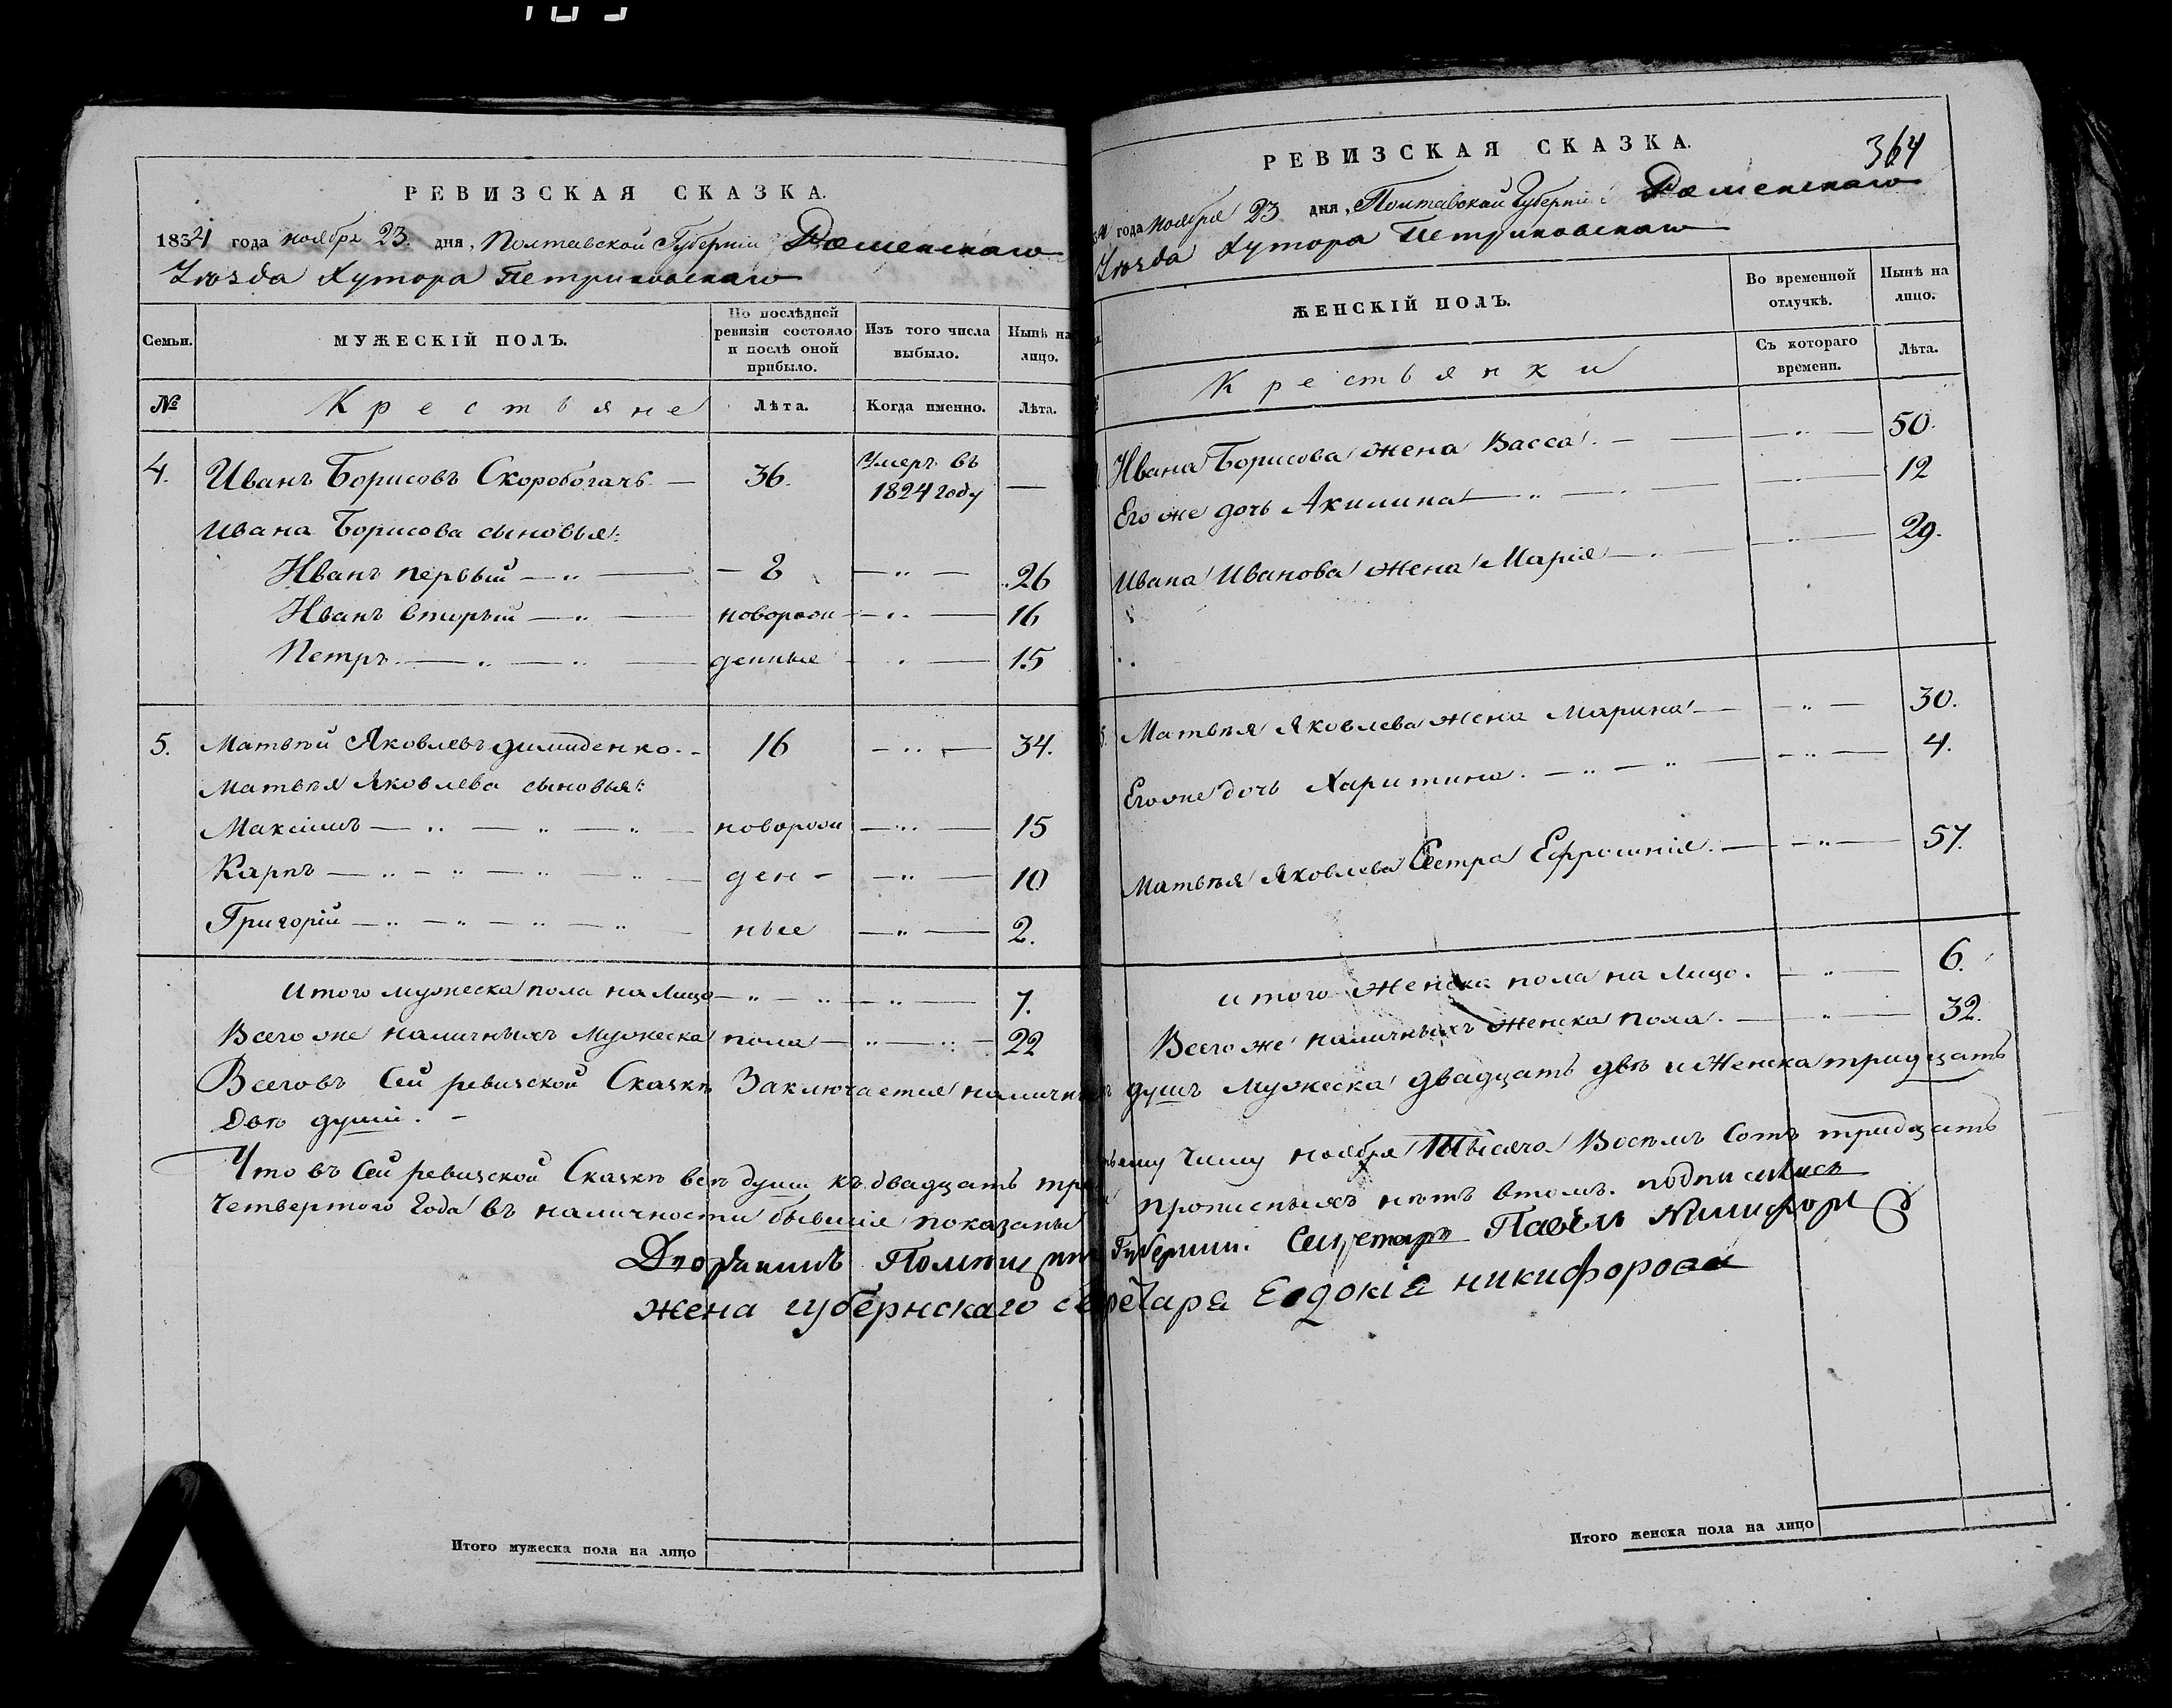 РЕВИЗСКАЯ СКАЗКА.
1834 года ноября 23. дня, Полтавской Губерніи Роменскаго
Уѣзда Хутора Петриковскаго
Семьи.
МУЖЕСКІЙ ПОЛЪ.
По послѣдней ревизіи состояло и послѣ оной прибыло.
Изъ того числа выбыло.
Нынѣ на лицо.
№
Крестьяне
Лѣта.
Когда именно.
Лѣта.
4. Иванъ Борисовъ Скоробогачъ — 36. Умеръ въ 1824 году —
Ивана Борисова сыновья:
Иванъ первый — 8 — 26
Иванъ вторый — новорож — 16
Петръ — денные — 15
5. Матвѣй Яковлевъ Димиденко. 16 — 34.
Матвѣя Яковлева сыновья:
Максимъ — новорож — 15
Карпъ — ден — 10
Григорій — ные — 2.
Итого мужеска пола на лицо — 7.
Всего же наличныхъ мужеска пола — 22
РЕВИЗСКАЯ СКАЗКА.
364
года ноября 23 дня, Полтавской Губерніи Роменскаго
Уѣзда Хутора Петриковскаго
ЖЕНСКІЙ ПОЛЪ.
Во временной отлучкѣ.
Нынѣ на лицо.
Крестьянки
Съ котораго времени.
Лѣта.
Ивана Борисова жена Васса. — 50.
Его же дочь Акилина — 12
Ивана Иванова жена Марія — 29.
Матвѣя Яковлева жена Марина — 30.
Его же дочь Харитина. — 4.
Матвѣя Яковлева Сестра Ефросинія. — 57.
Итого женска пола на лицо. — 6.
Всего же наличныхъ женска пола. — 32.
Всего въ Сей ревизской Сказкѣ Заключается наличныхъ душъ мужеска двадцать двѣ и Женска тридцать
двѣ души. —
Что въ Сей ревизской Сказкѣ всѣ души къ двадцать третьему Числу ноября Тысяча Восемъ Сотъ тридцать
Четвертого Года въ наличности бывшія показаны и прописныхъ нѣтъ втомъ. подписались
Дворянинъ Губерніи. Секретарь Павелъ Никифор
жена губернскаго секретара Евдокія никифорова
Итого мужеска пола на лицо
Итого женска пола на лицо